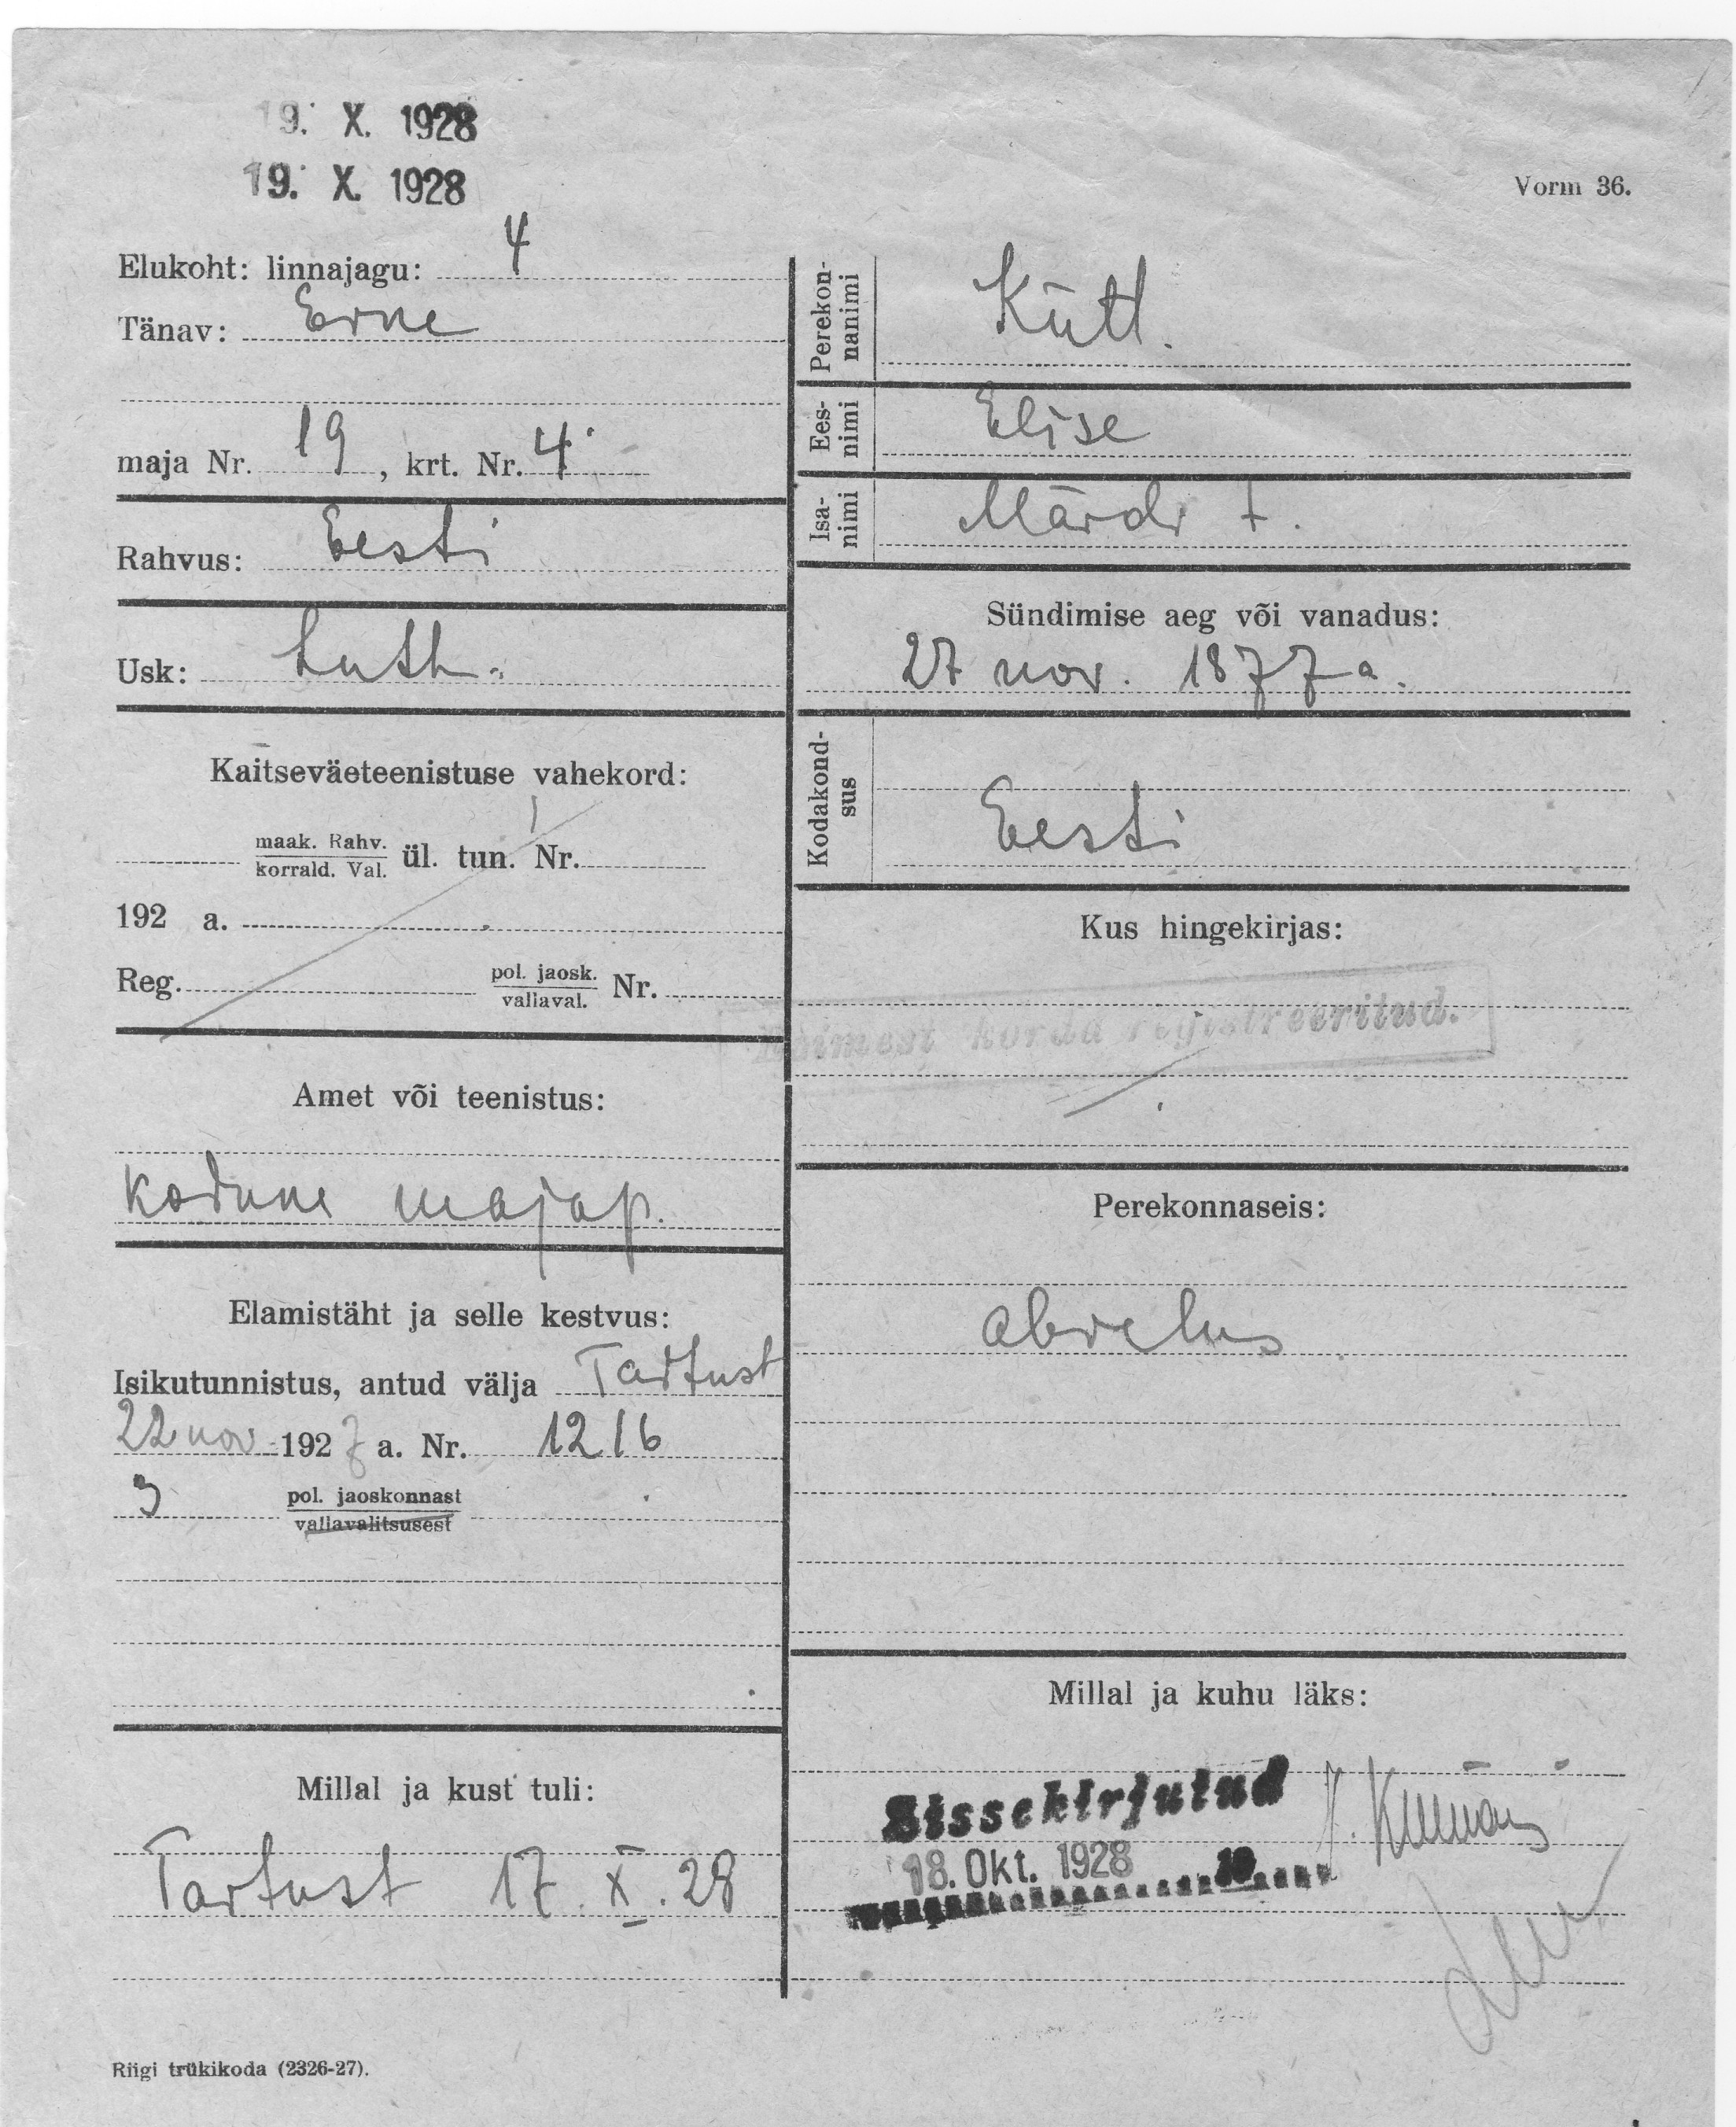 19. X. 1928
19. X. 1928
Vorm 36.
Elukoht: linnajagu: 4
Tänav: Erne
maja Nr. 19, krt. Nr. 4
Rahvus: Eesti
Usk: Luth.
Kaitseväeteenistuse vahekord:
maak. Rahv.
korrald. Val. ül. tun. Nr.
192 a.
Reg. pol. jaosk.
vallaval. Nr.
Amet või teenistus:
kodune majap.
Elamistäht ja selle kestvus:
Isikutunnistus, antud välja Tartust
22 nov 1927 a. Nr. 1216
3 pol. jaoskonnast
vallavalitsusest
Millal ja kust tuli:
Tartust 17. X. 28
Perekon-
nanimi Kütt.
Ees-
nimi Elise
Isa-
nimi Märdi t.
Sündimise aeg või vanadus:
27 nov. 1877 a.
Kodakond-
sus Eesti
Kus hingekirjas:
Esimest korda registreeritud.
Perekonnaseis:
abielus
Millal ja kuhu läks:
Sissekirjutud
18. Okt. 1928
Riigi trükikoda (2326-27).